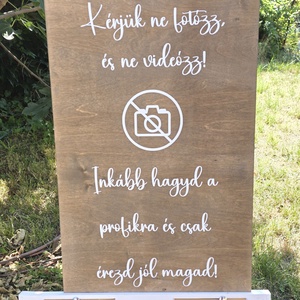 Kérjük ne fotózz,
és ne videózz!
Inkább hagyd a
profikra és csak
érezd jól magad!